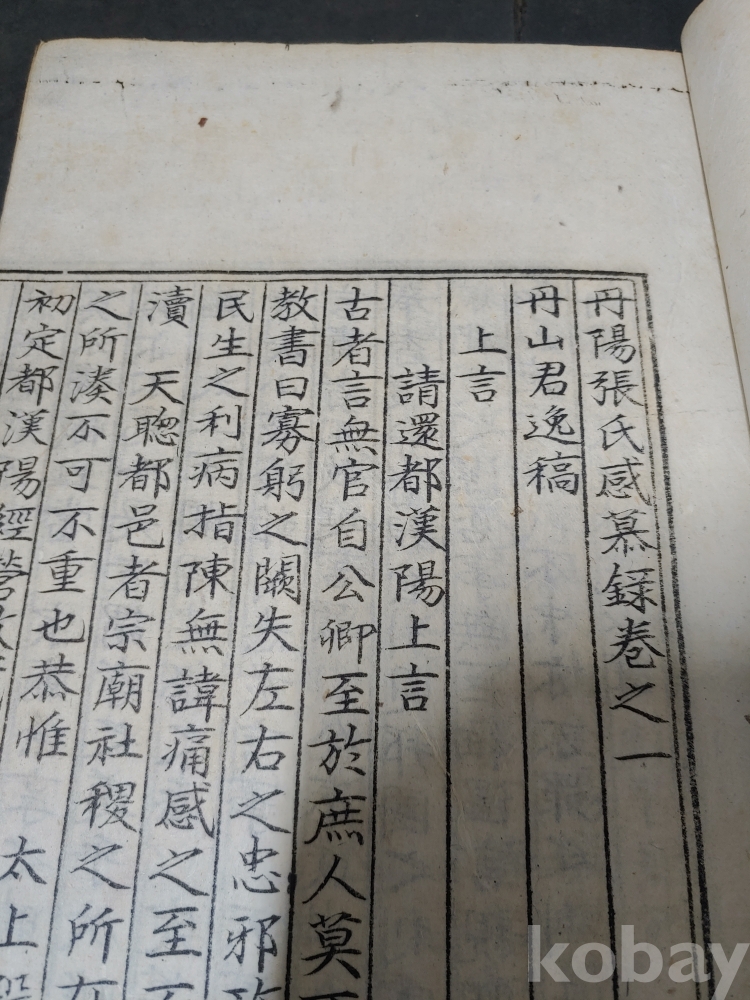 丹陽張氏感慕錄卷之一
丹山君逸稿
上言
請還都漢陽上言
古者言無官自公卿至於庶人莫不
教書曰寡躬之闕失左右之忠邪政
民生之利病指陳無諱痛感之至不
瀆 天聰都邑者宗廟社稷之所在
之所湊不可不重也恭惟 太上
初定都漢陽經營
kobay